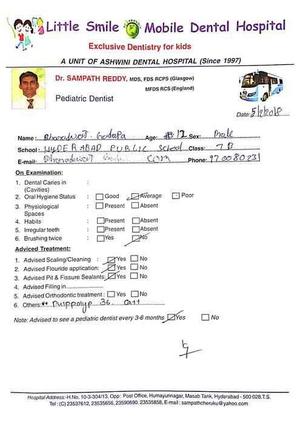 Little Smile Mobile Dental Hospital
Exclusive Dentistry for kids
A UNIT OF ASHWINI DENTAL HOSPITAL (Since 1997)
Dr. SAMPATH REDDY, MDS, FDS RCPS (Glasgow)
MFDS RCS (England)
Pediatric Dentist
Date:
Name: Age: 12 Sex: Male
School: HYDERABAD PUBLIC School Class: 7
E-mail: Com Phone:
On Examination:
1. Dental Caries in (Cavities) :
2. Oral Hygiene Status : Good Average Poor
3. Physiological Spaces : Present Absent
4. Habits : Present Absent
5. Irregular teeth : Present Absent
6. Brushing twice : Yes No
Adviced Treatment:
1. Advised Scaling/Cleaning : Yes No
2. Advised Flouride application: Yes No
3. Advised Pit & Fissure Sealants Yes No
4. Advised Filling in
5. Advised Orthodontic treatment : Yes No
6. Others: 36.
Note: Advised to see a pediatric dentist every 3-6 months Yes No
Hospital Address:-H.No. 10-3-304/13, Opp: Post Office, Humayunnagar, Masab Tank, Hyderabad - 500 028.T.S.
Tel: (C) 23537612, 23535656, 23590690, 23535858, E-mail : sampathcheruku@yahoo.com